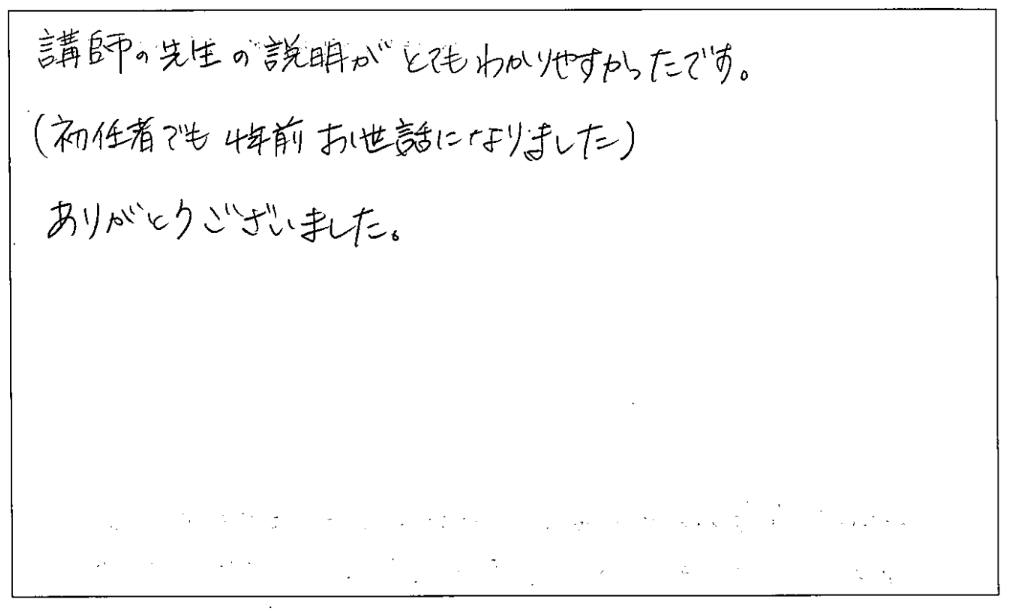 講師の先生の説明がとてもわかりやすかったです。
(初任者でも4年前お世話になりました)
ありがとうございました。